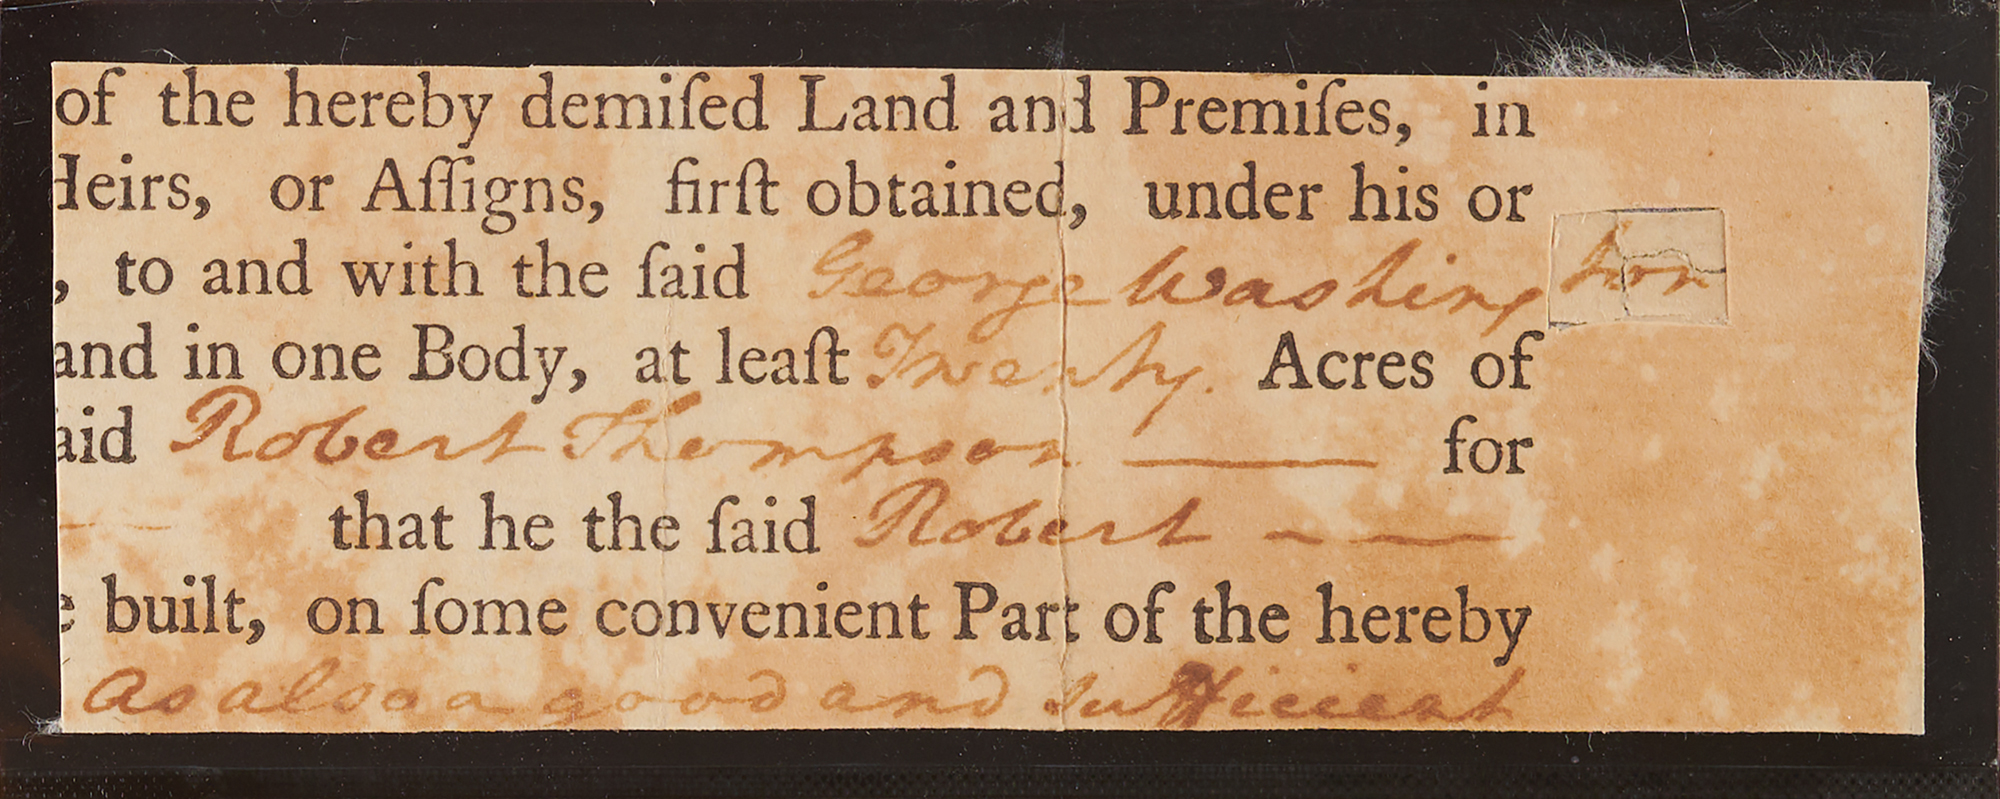 of the hereby demiſed Land and Premiſes, in
Heirs, or Aſſigns, firſt obtained, under his or
, to and with the ſaid George Washington
and in one Body, at leaſt Twenty. Acres of
aid Robert Thompson —— for
— that he the ſaid Robert — ——
e built, on ſome convenient Part of the hereby
As also a good and Sufficient